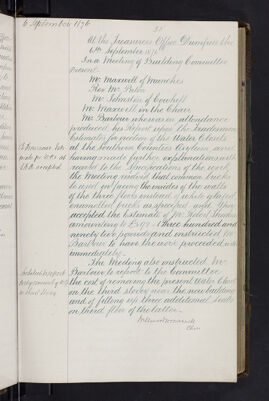 6 September 1876
At the Treasurers Office Dumfries the
6th September 1876
In a Meeting of Building Committee
Present
Mr. Maxwell of Munches
Rev Mr. Paton
Mr. Johnston of Cowhill
Mr. Maxwell in the Chair
Mr. Barbour who was in attendance
produced his Report upon the Tradesmens
Estimates for erection of the Water Closets
at the Southern Counties Asylum and
having made further explanations with
regard to the Specifications of the work
the Meeting resolved that common bricks
be used in facing the insides of the walls
of the three floors instead of white glazed
enamelled bricks as specified and they
accepted the Estimate of Mr. Robert
amounting to £392 – Three hundred and
ninety two pounds and instructed Mr
Barbour to have the work proceeded with
immediately.
The Meeting also instructed Mr
Barbour to report to the Committee
the cost of removing the present Water Closet
on the third storey near the new building
and of fitting up three additional Seats
on third floor of the latter.
Chn